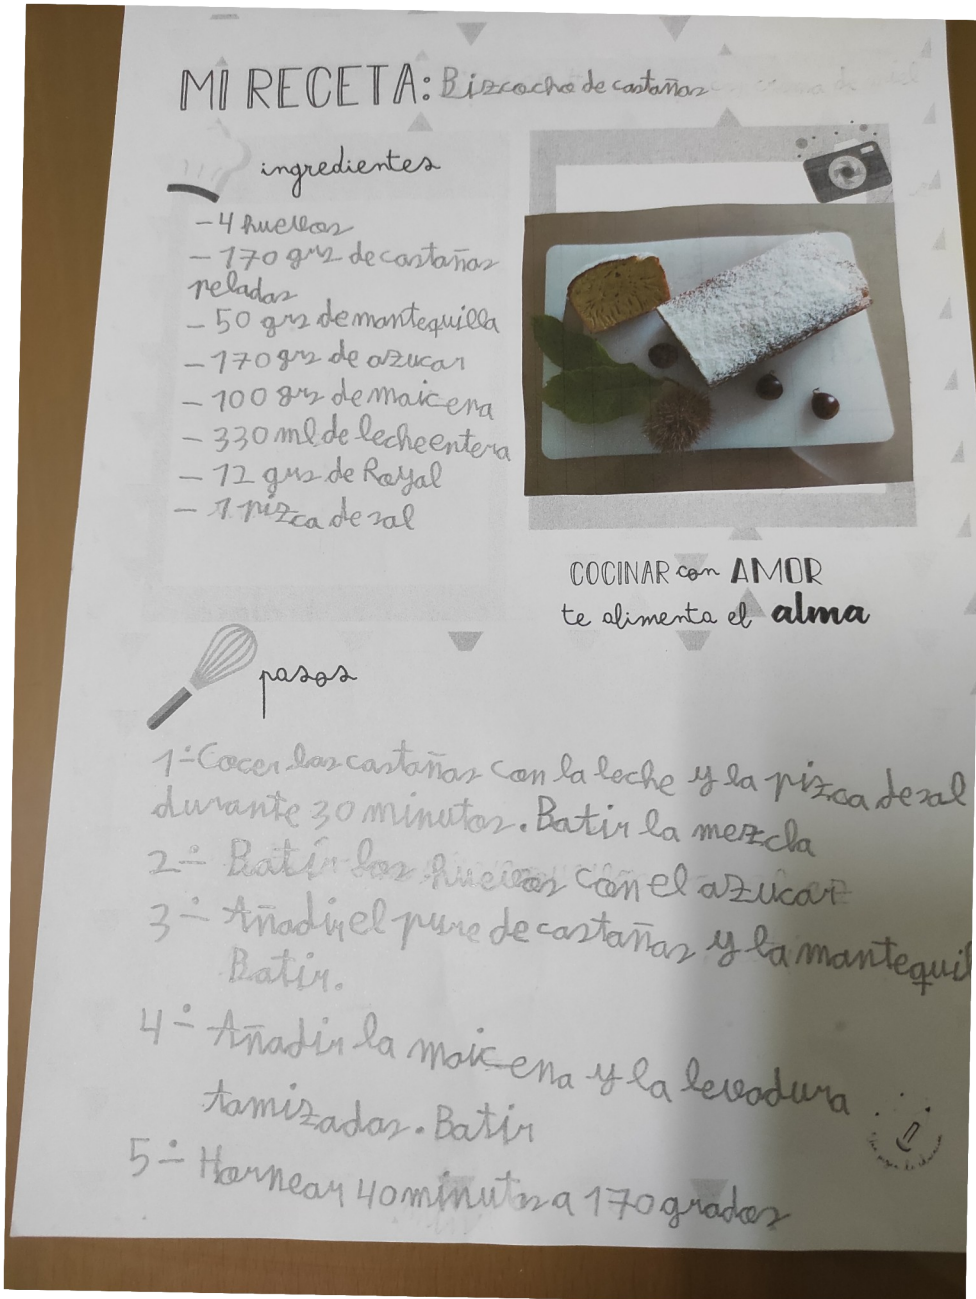 MI RECETA: Bizcocho de castañas
ingredientes
- 4 huevos
- 170 grs de castañas
peladas
- 50 grs de mantequilla
- 170 grs de azucar
- 100 grs de maicena
- 330 ml de leche entera
- 12 grs de Royal
- 1 pizca de sal
COCINAR con AMOR
te alimenta el alma
pasos
1÷ Cocer las castañas con la leche y la pizca de sal
durante 30 minutos. Batir la mezcla
2÷ Batir los huevos con el azucar
3÷ Añadir el pure de castañas y la mantequil
Batir.
4÷ Añadir la maicena y la levadura
tamizadas. Batir
5÷ Hornear 40 minutos a 170 grados